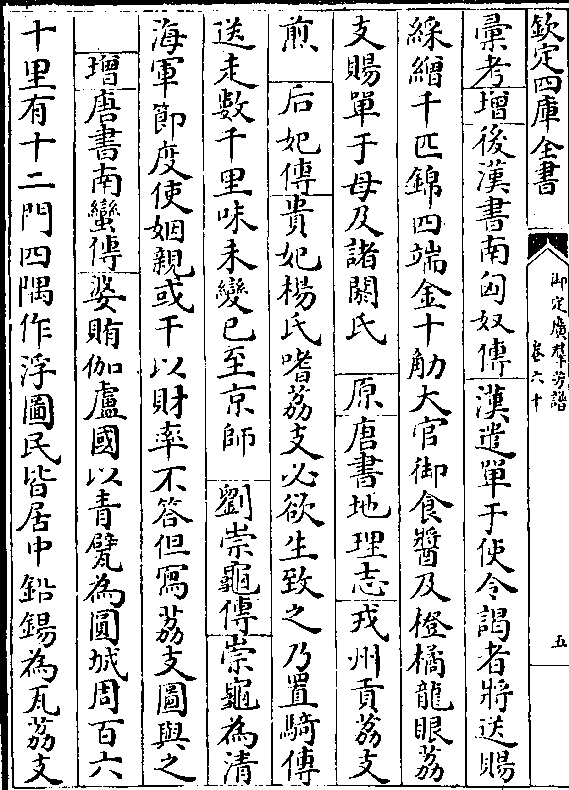 欽定四庫全書
御定廣羣芳譜
卷六十
五
彚考增後漢書南匈奴傳漢遣單于使令謁者將送賜
綵繒千匹錦四端金十觔大官御食醬及橙橘龍眼荔
支賜單于母及諸閼氏 原唐書地理志戎州貢荔支
煎 后妃傳貴妃楊氏嗜荔支必欲生致之乃置騎傳
送走數千里味未變已至京師 劉崇龜傳崇龜為清
海軍節度使姻親或干以財率不答但寫荔支圖與之
增唐書南蠻傳婆賄伽盧國以青甓為圓城周百六
十里有十二門四隅作浮圖民皆居中鉛錫為瓦荔支